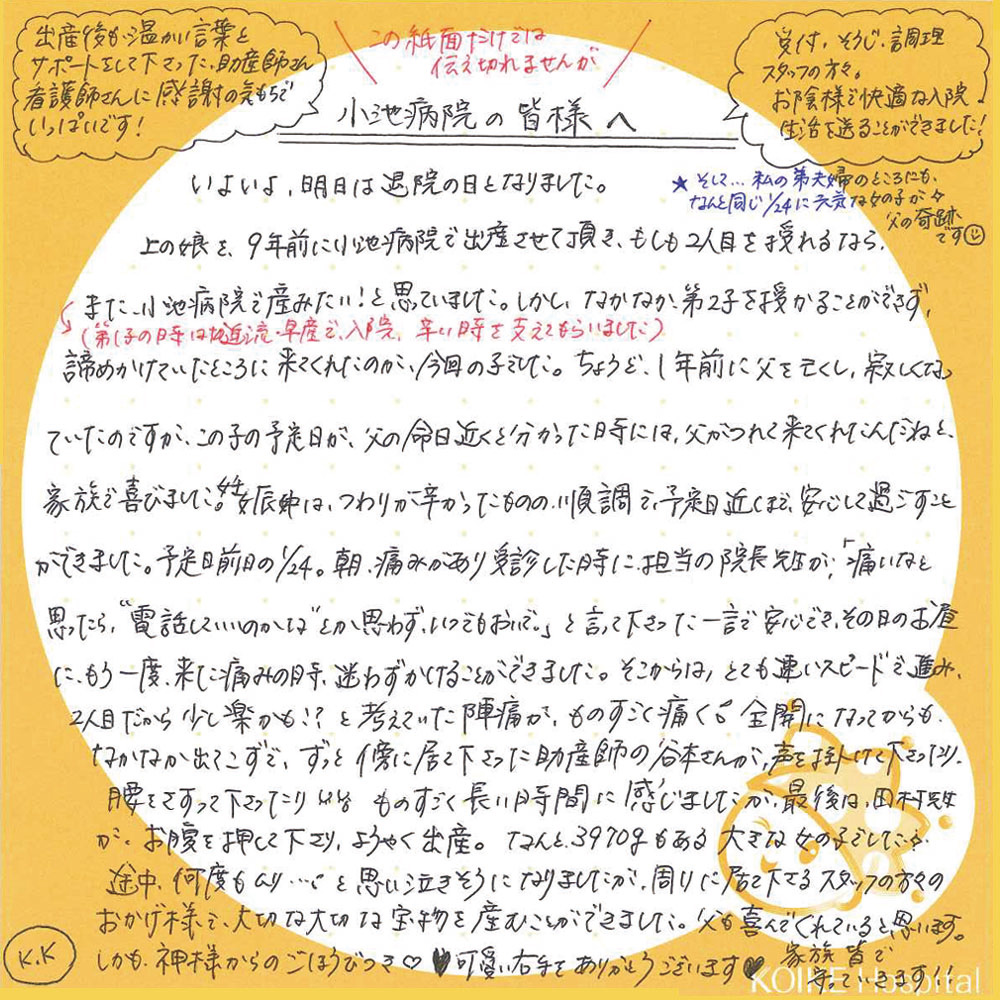 出産後も、温かい言葉と
サポートをして下さった、助産師さん
看護師さんに感謝の気もちで
いっぱいです！
この紙面だけでは
伝え切れませんが
受付、そうじ、調理
スタッフの方々。
お陰様で快適な入院
生活を送ることができました！
小池病院の皆様へ
いよいよ、明日は退院の日となりました。
★そして…私の弟夫婦のところにも、
なんと同じ1/24に元気な女の子が☆
父の奇跡
です☺
上の娘を、9年前に小池病院で出産させて頂き、もしも2人目を授れるなら、
また、小池病院で産みたい！と思っていました。しかし、なかなか、第2子を授かることができず、
(第1子の時は 早産で、入院、辛い時を支えてもらいました)
諦めかけていたところに来てくれたのが、今回の子でした。ちょうど、1年前に父を亡くし、寂しくなっ
ていたのですが、この子の予定日が、父の命日近くと分かった時には、父がつれて来てくれたんだねと、
家族で喜びました。妊娠中は、つわりが辛かったものの、順調で、予定日近くまで、安心して過ごすこと
ができました。予定日前日の1/24。朝、痛みがあり受診した時に、担当の院長先生が、「痛いなと
思ったら、“電話していいのかな”とか思わず、いつでもおいで。」と言って下さった一言で安心でき、その日のお昼
に、もう一度、来た痛みの時、迷わずかけることができました。そこからは、とても速いスピードで進み、
2人目だから少し楽かも!?と考えていた陣痛が、ものすごく痛く。全開になってからも、
なかなか出てこずで、ずっと傍に居て下さった助産師の谷本さんが、声を掛けて下さったり、
腰をさすって下さったり ものすごく長い時間に感じましたが、最後は、田村先生
が、お腹を押して下さり、ようやく出産。なんと、3970gもある大きな女の子でした
途中、何度もムリ…と思い泣きそうになりましたが、周りに居て下さるスタッフの方々の
おかげ様で、大切な大切な宝物を産むことができました。父も喜んでくれていると思います。
しかも、神様からのごほうびつき♡ ♥可愛い右手をありがとうございます♥
家族皆で
守っていきます!!
K.K
KOIKE Hospital